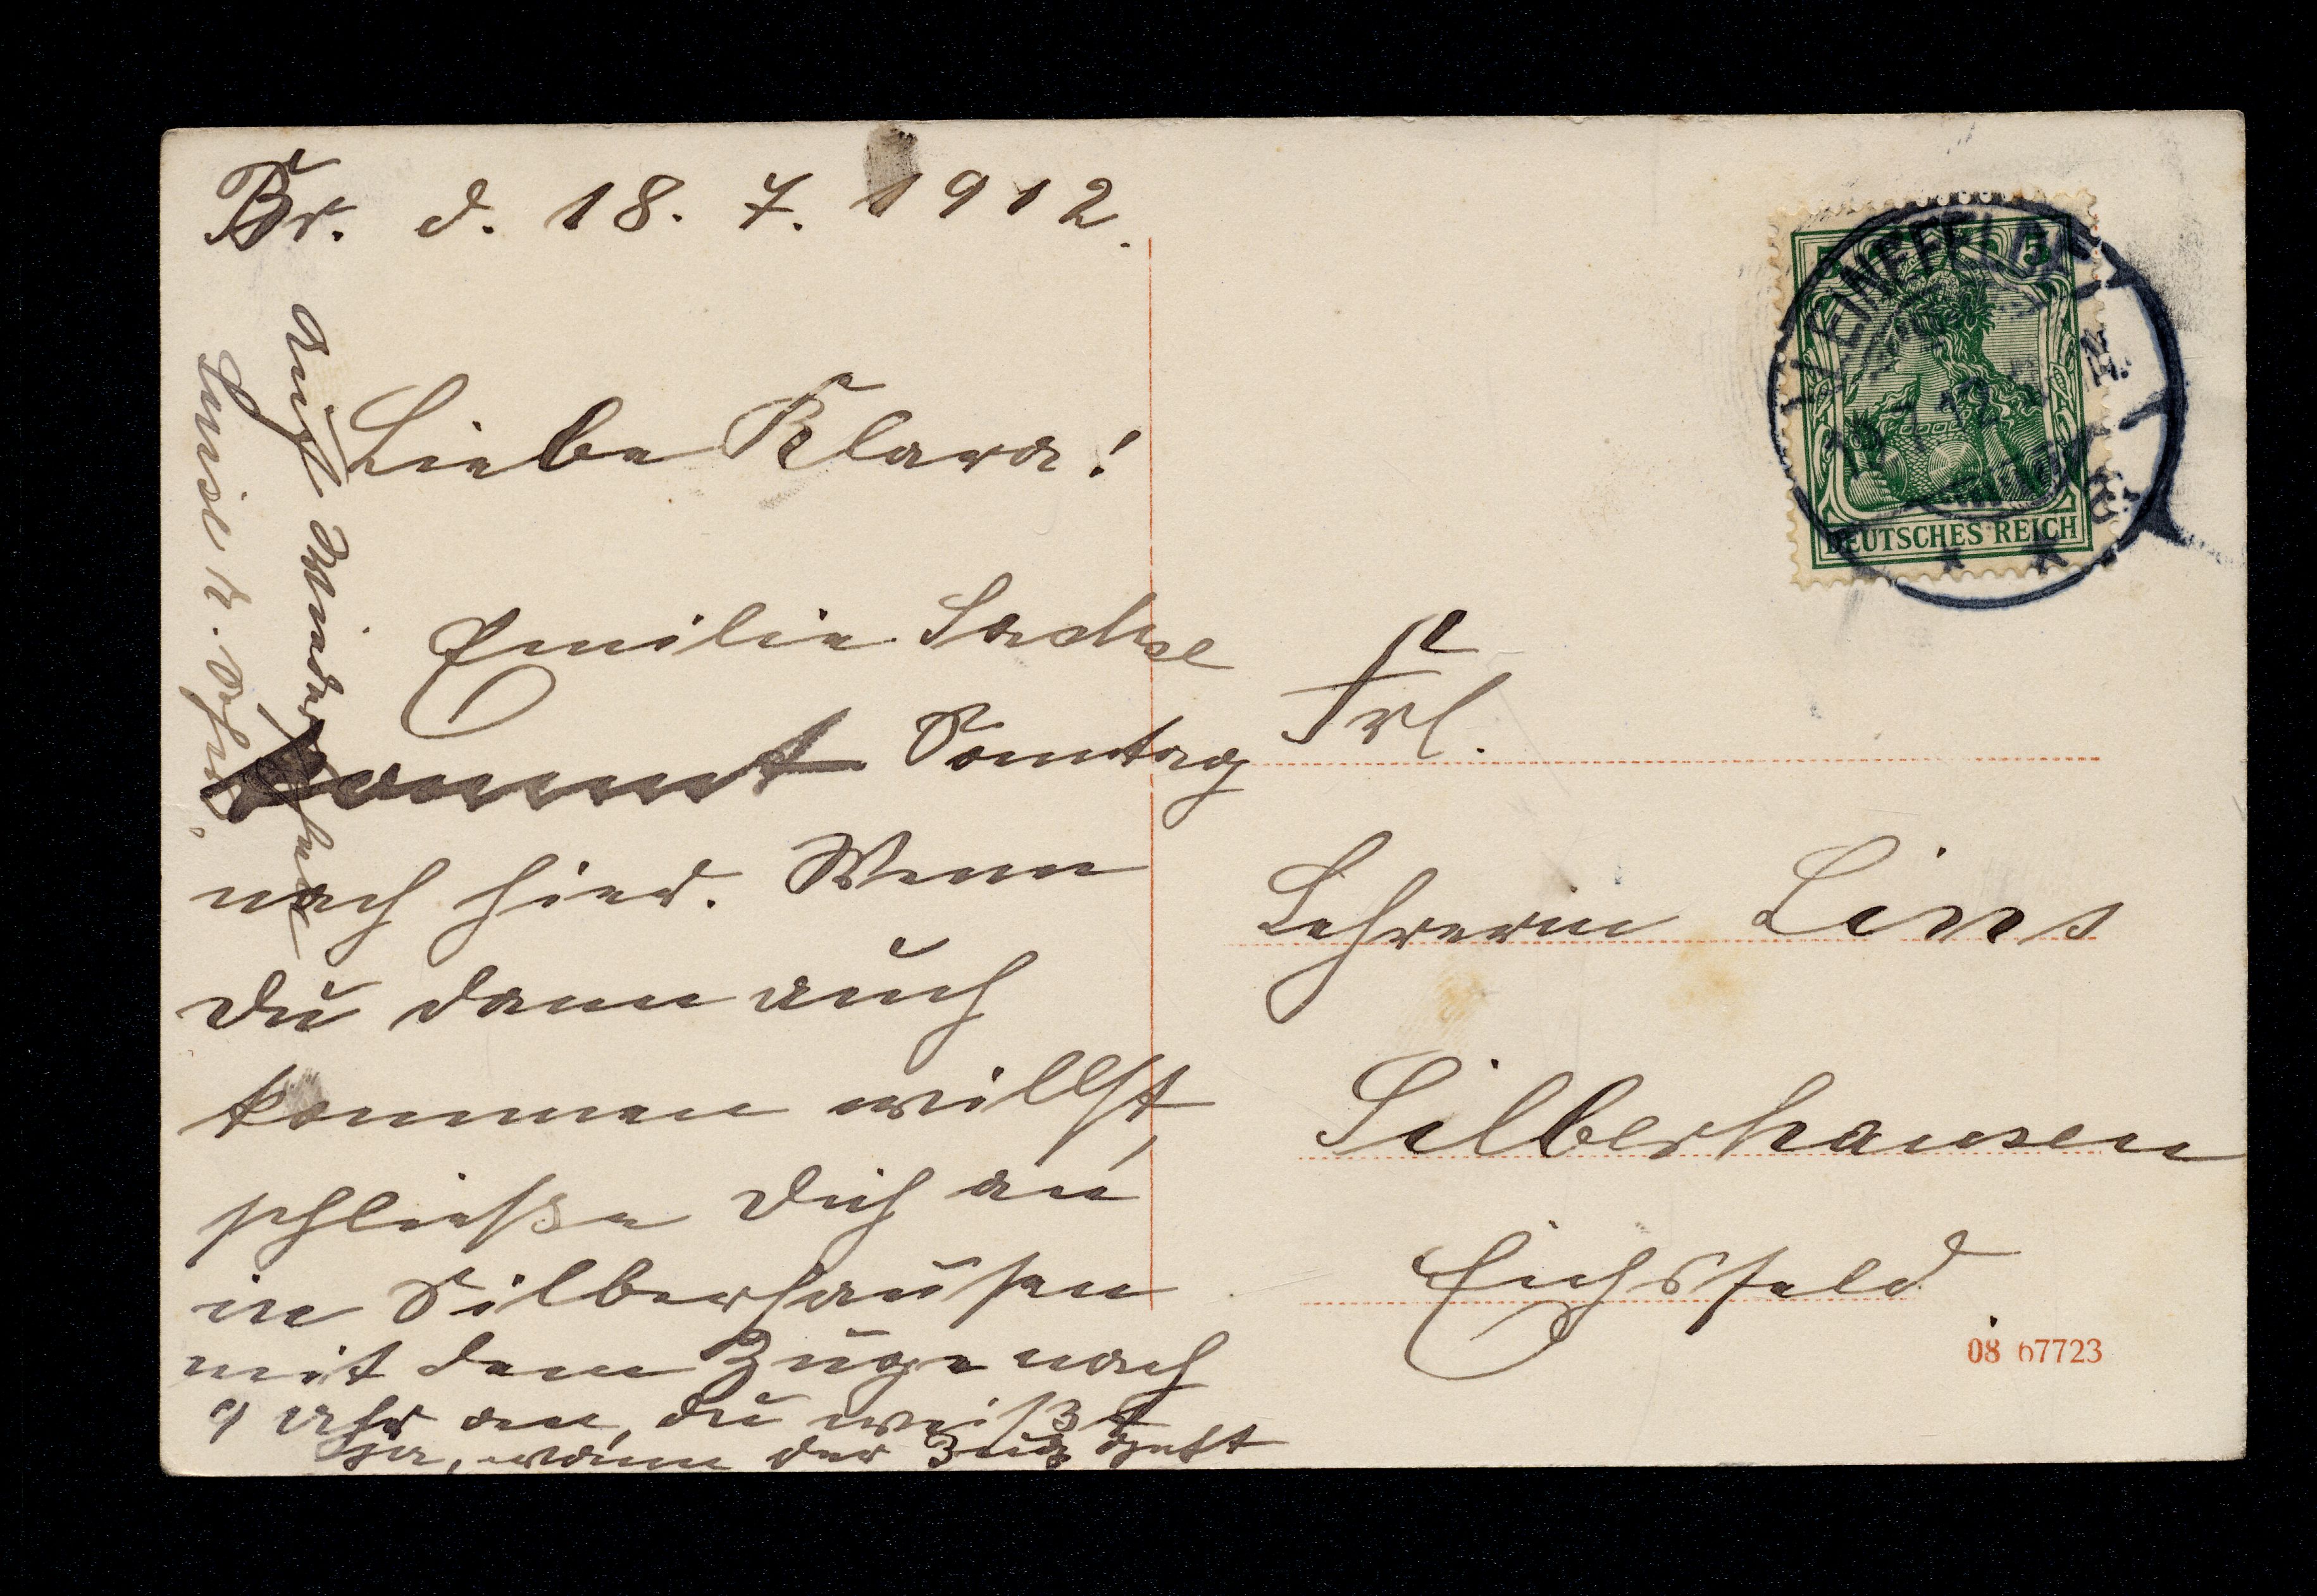 Br. d. 18. 7. 1912.
Liebe Klara!
Emilie Sachse
kommt Sonntag
nach hier. Wenn
du dann auch
kommen willst,
schließe dich an
in Silberhausen
mit dem Zuge nach
9 Uhr an, du weißt
ja, wann der Zug geht
Auf Wiedersehen
Luise
Frl.
Lehrerin Lins
Silberhausen
Eichsfeld
5 5
DEUTSCHES REICH
08 67723